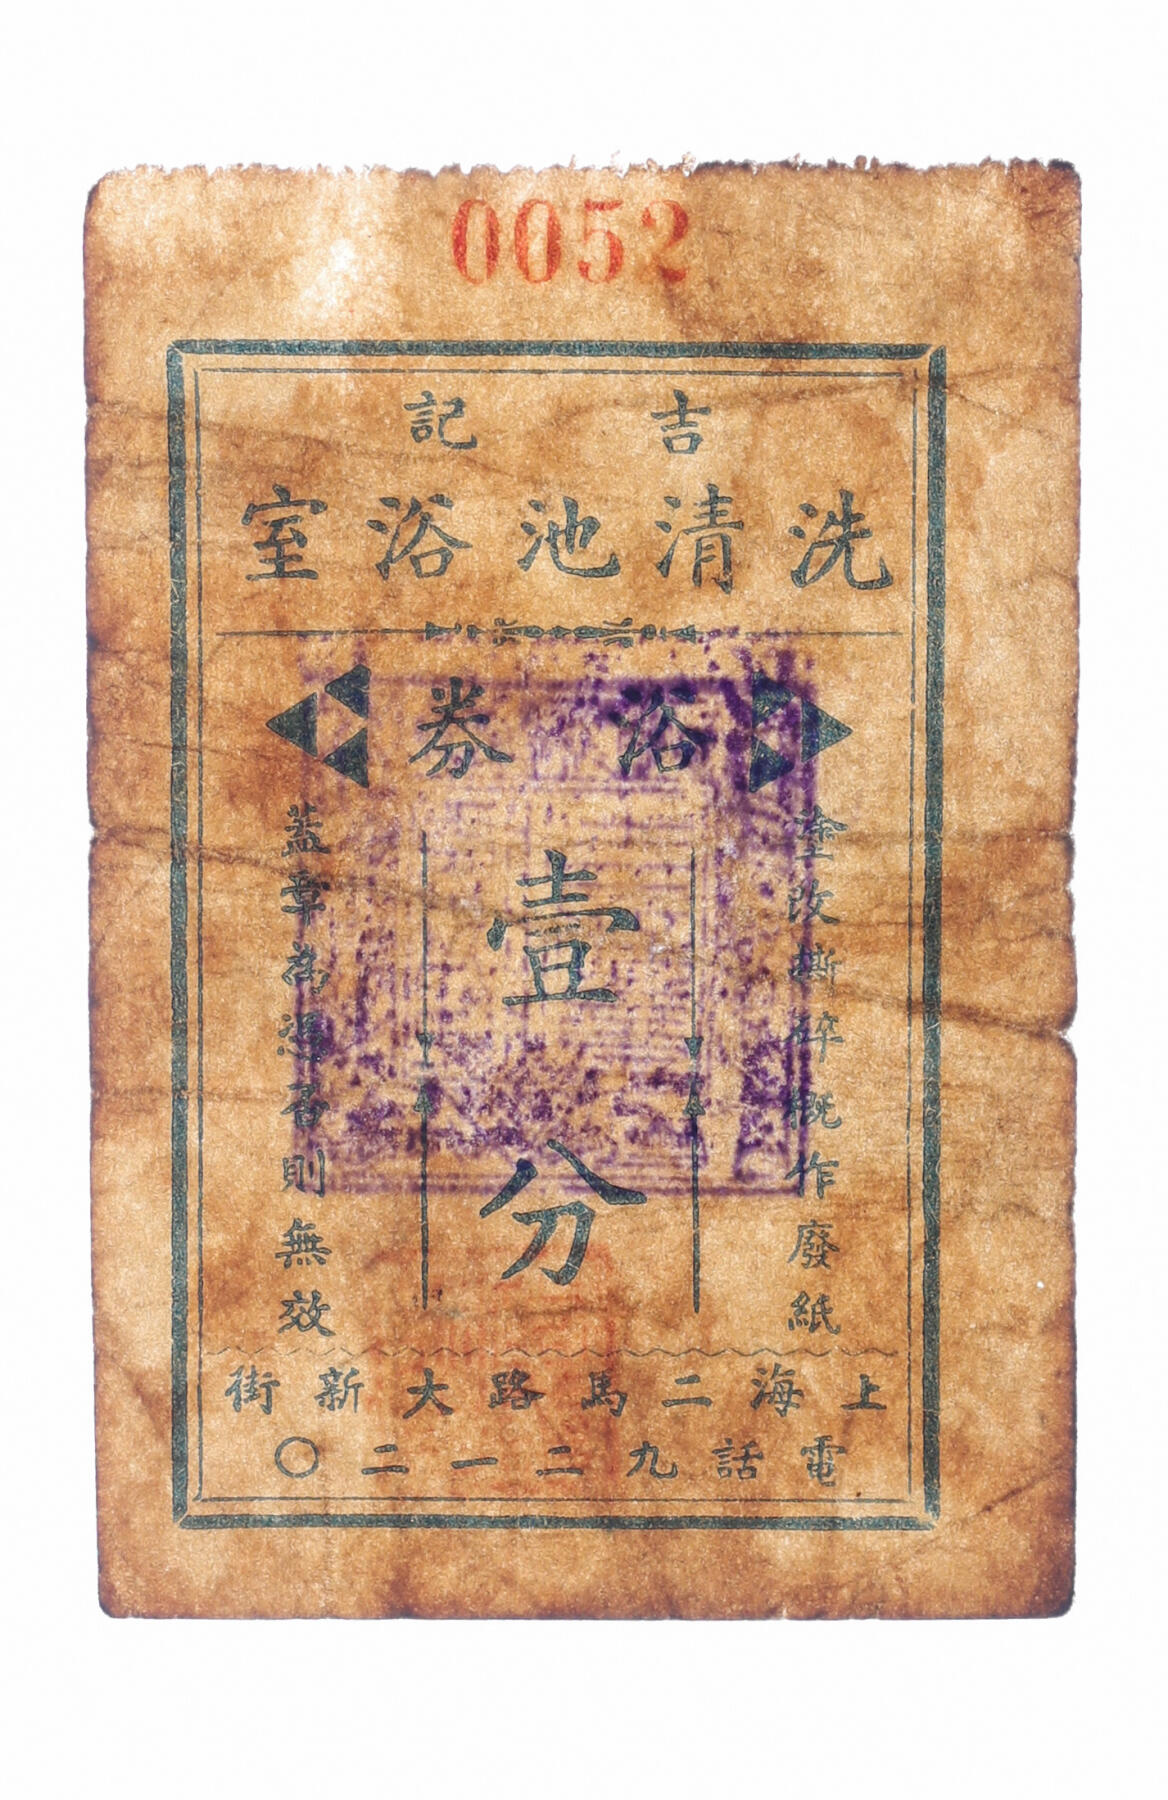 0052
吉記
洗清池浴室
浴券
壹分
塗改撕碎概作廢紙
蓋章為憑否則無效
上海二馬路大新街
電話九二一二〇